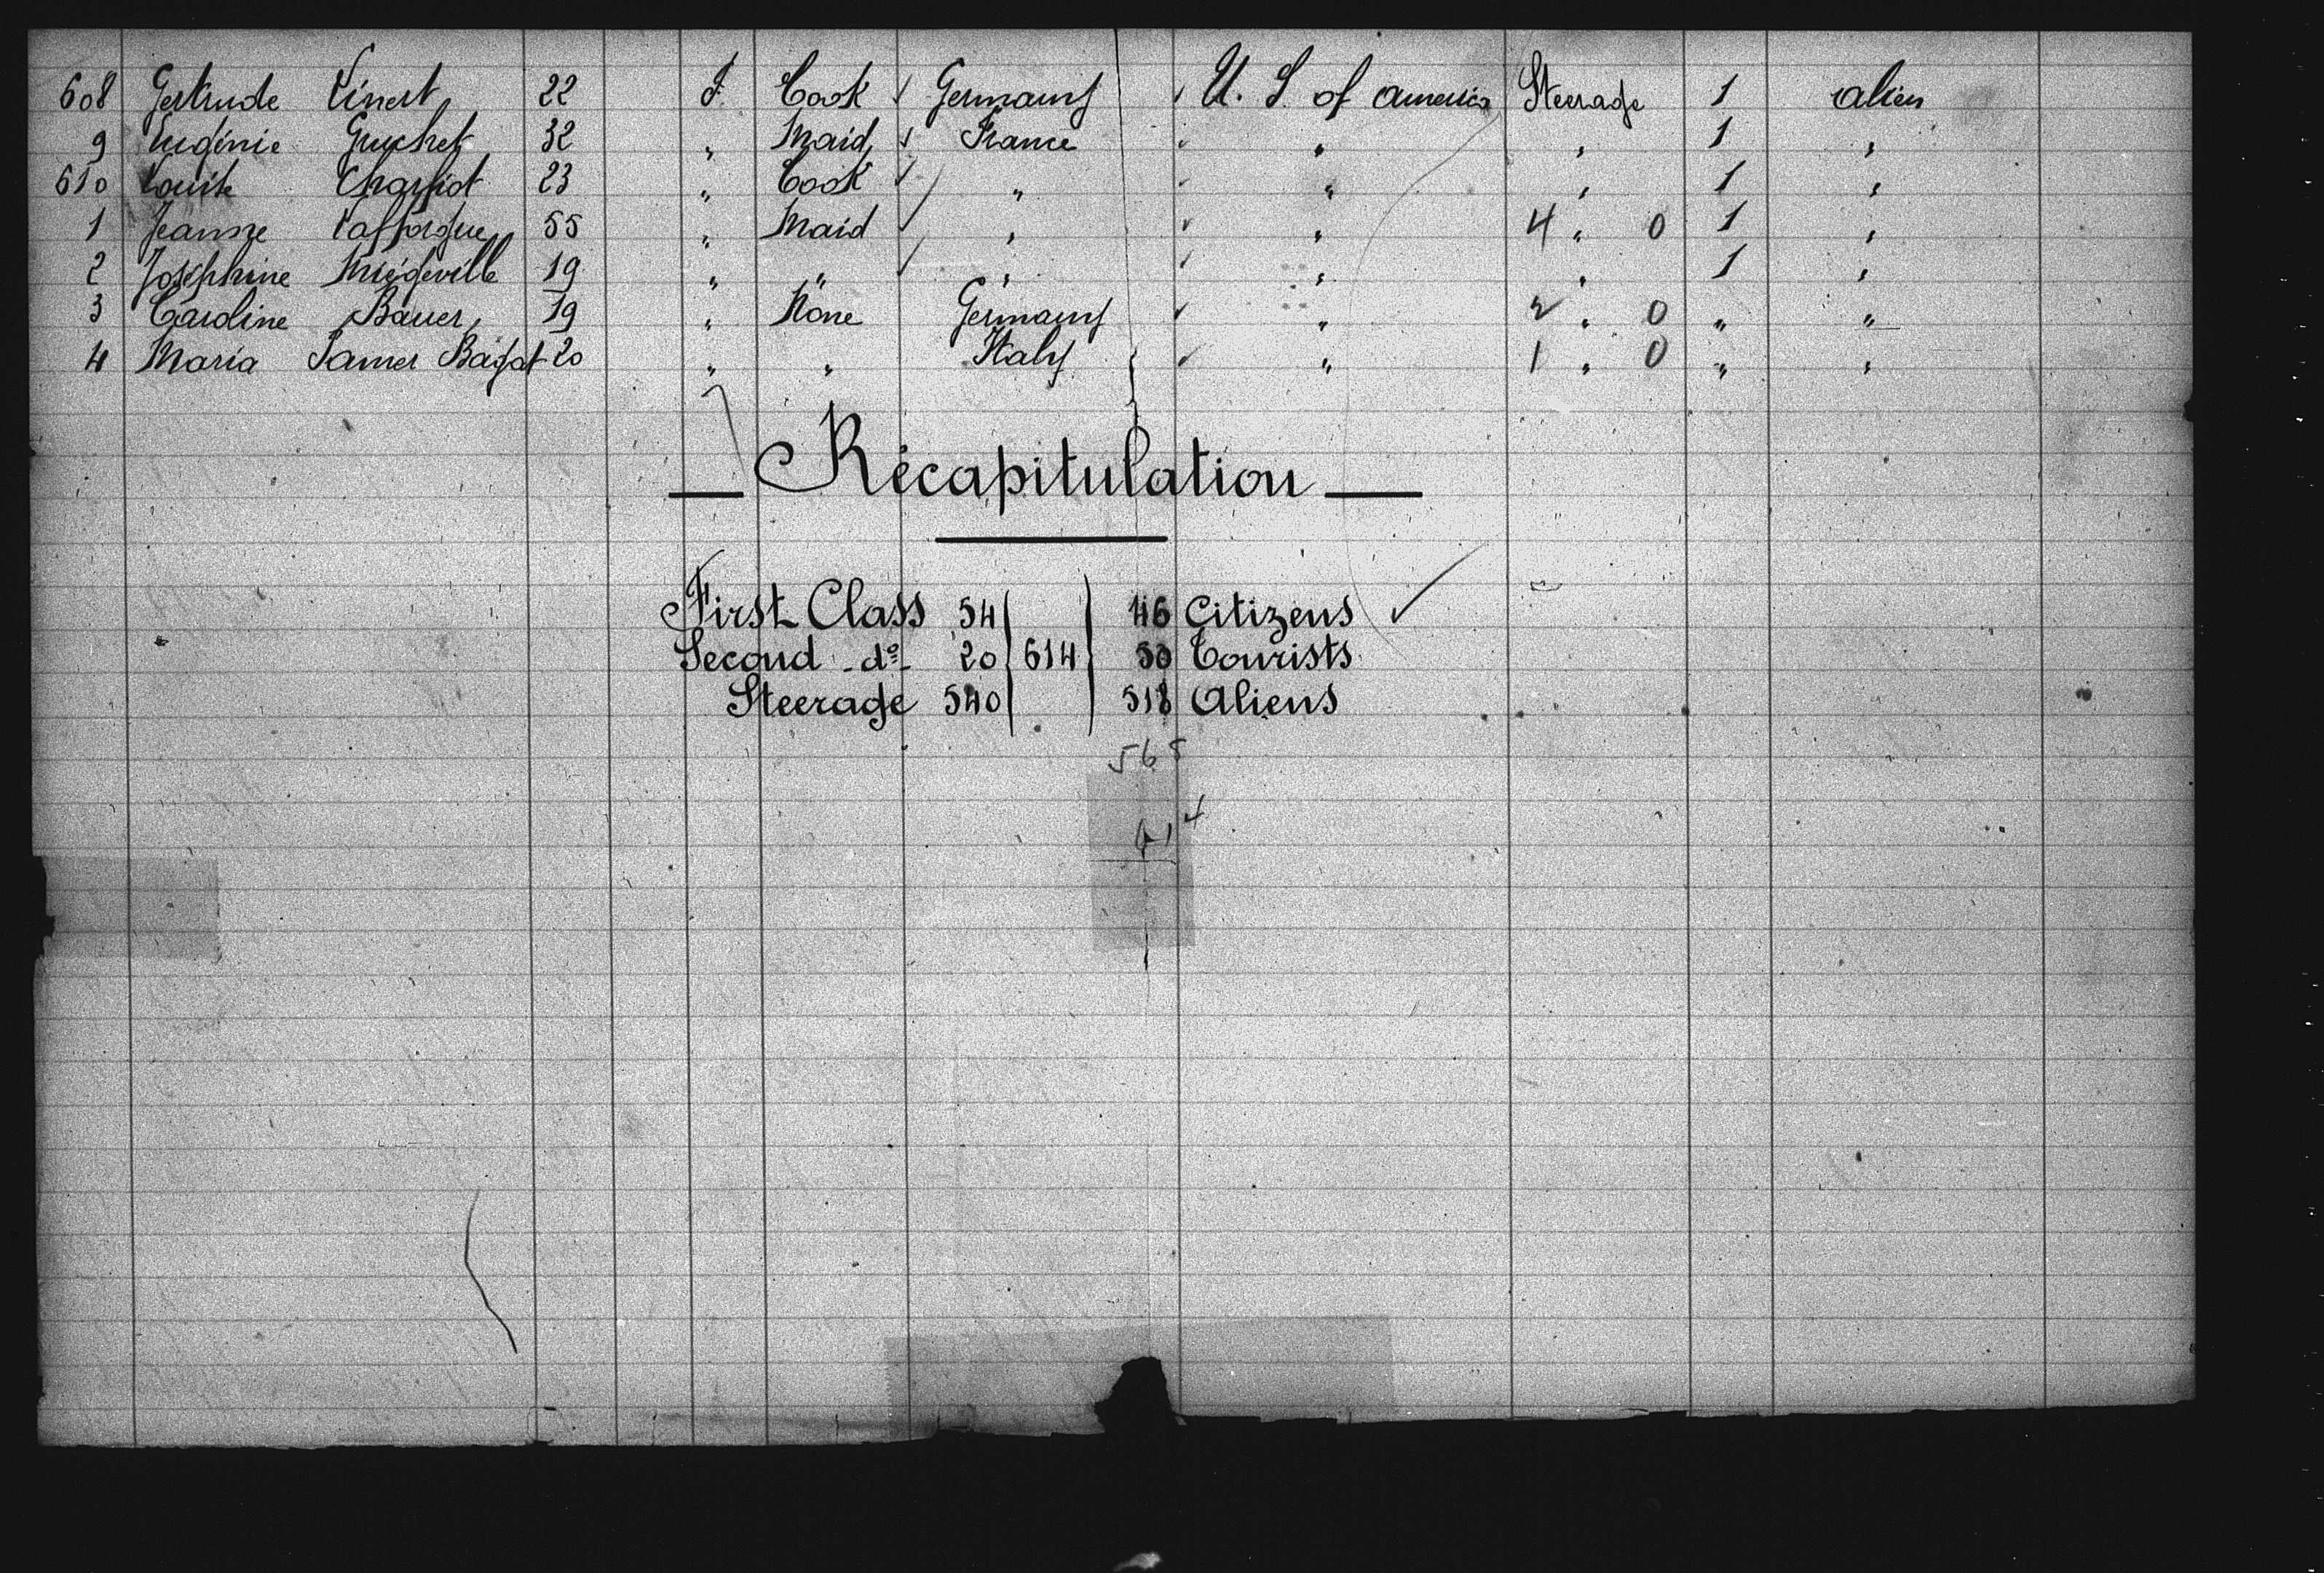 608 Gertrude Linert 22 F. Cook Germany U. S. of america Steerage 1 alien
9 Eugénie Guichet 32 " Maid France " " 1 "
610 Louise 23 " Cook " " " 1 "
1 Jeanne Lafforgue 55 " Maid " " 4 " 0 1 "
2 Joséphine Miégeville 19 " " " " " 1 "
3 Caroline Bauer 19 " None Germany " 2 " 0 " "
4 Maria 20 " " Italy " 1 " 0 " "
— Récapitulation —
First Class 54 46 Citizens
Second do 20 614 50 Tourists
Steerage 540 518 Aliens
568
614